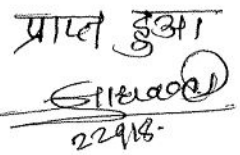 प्राप्त हुआ।
22918.